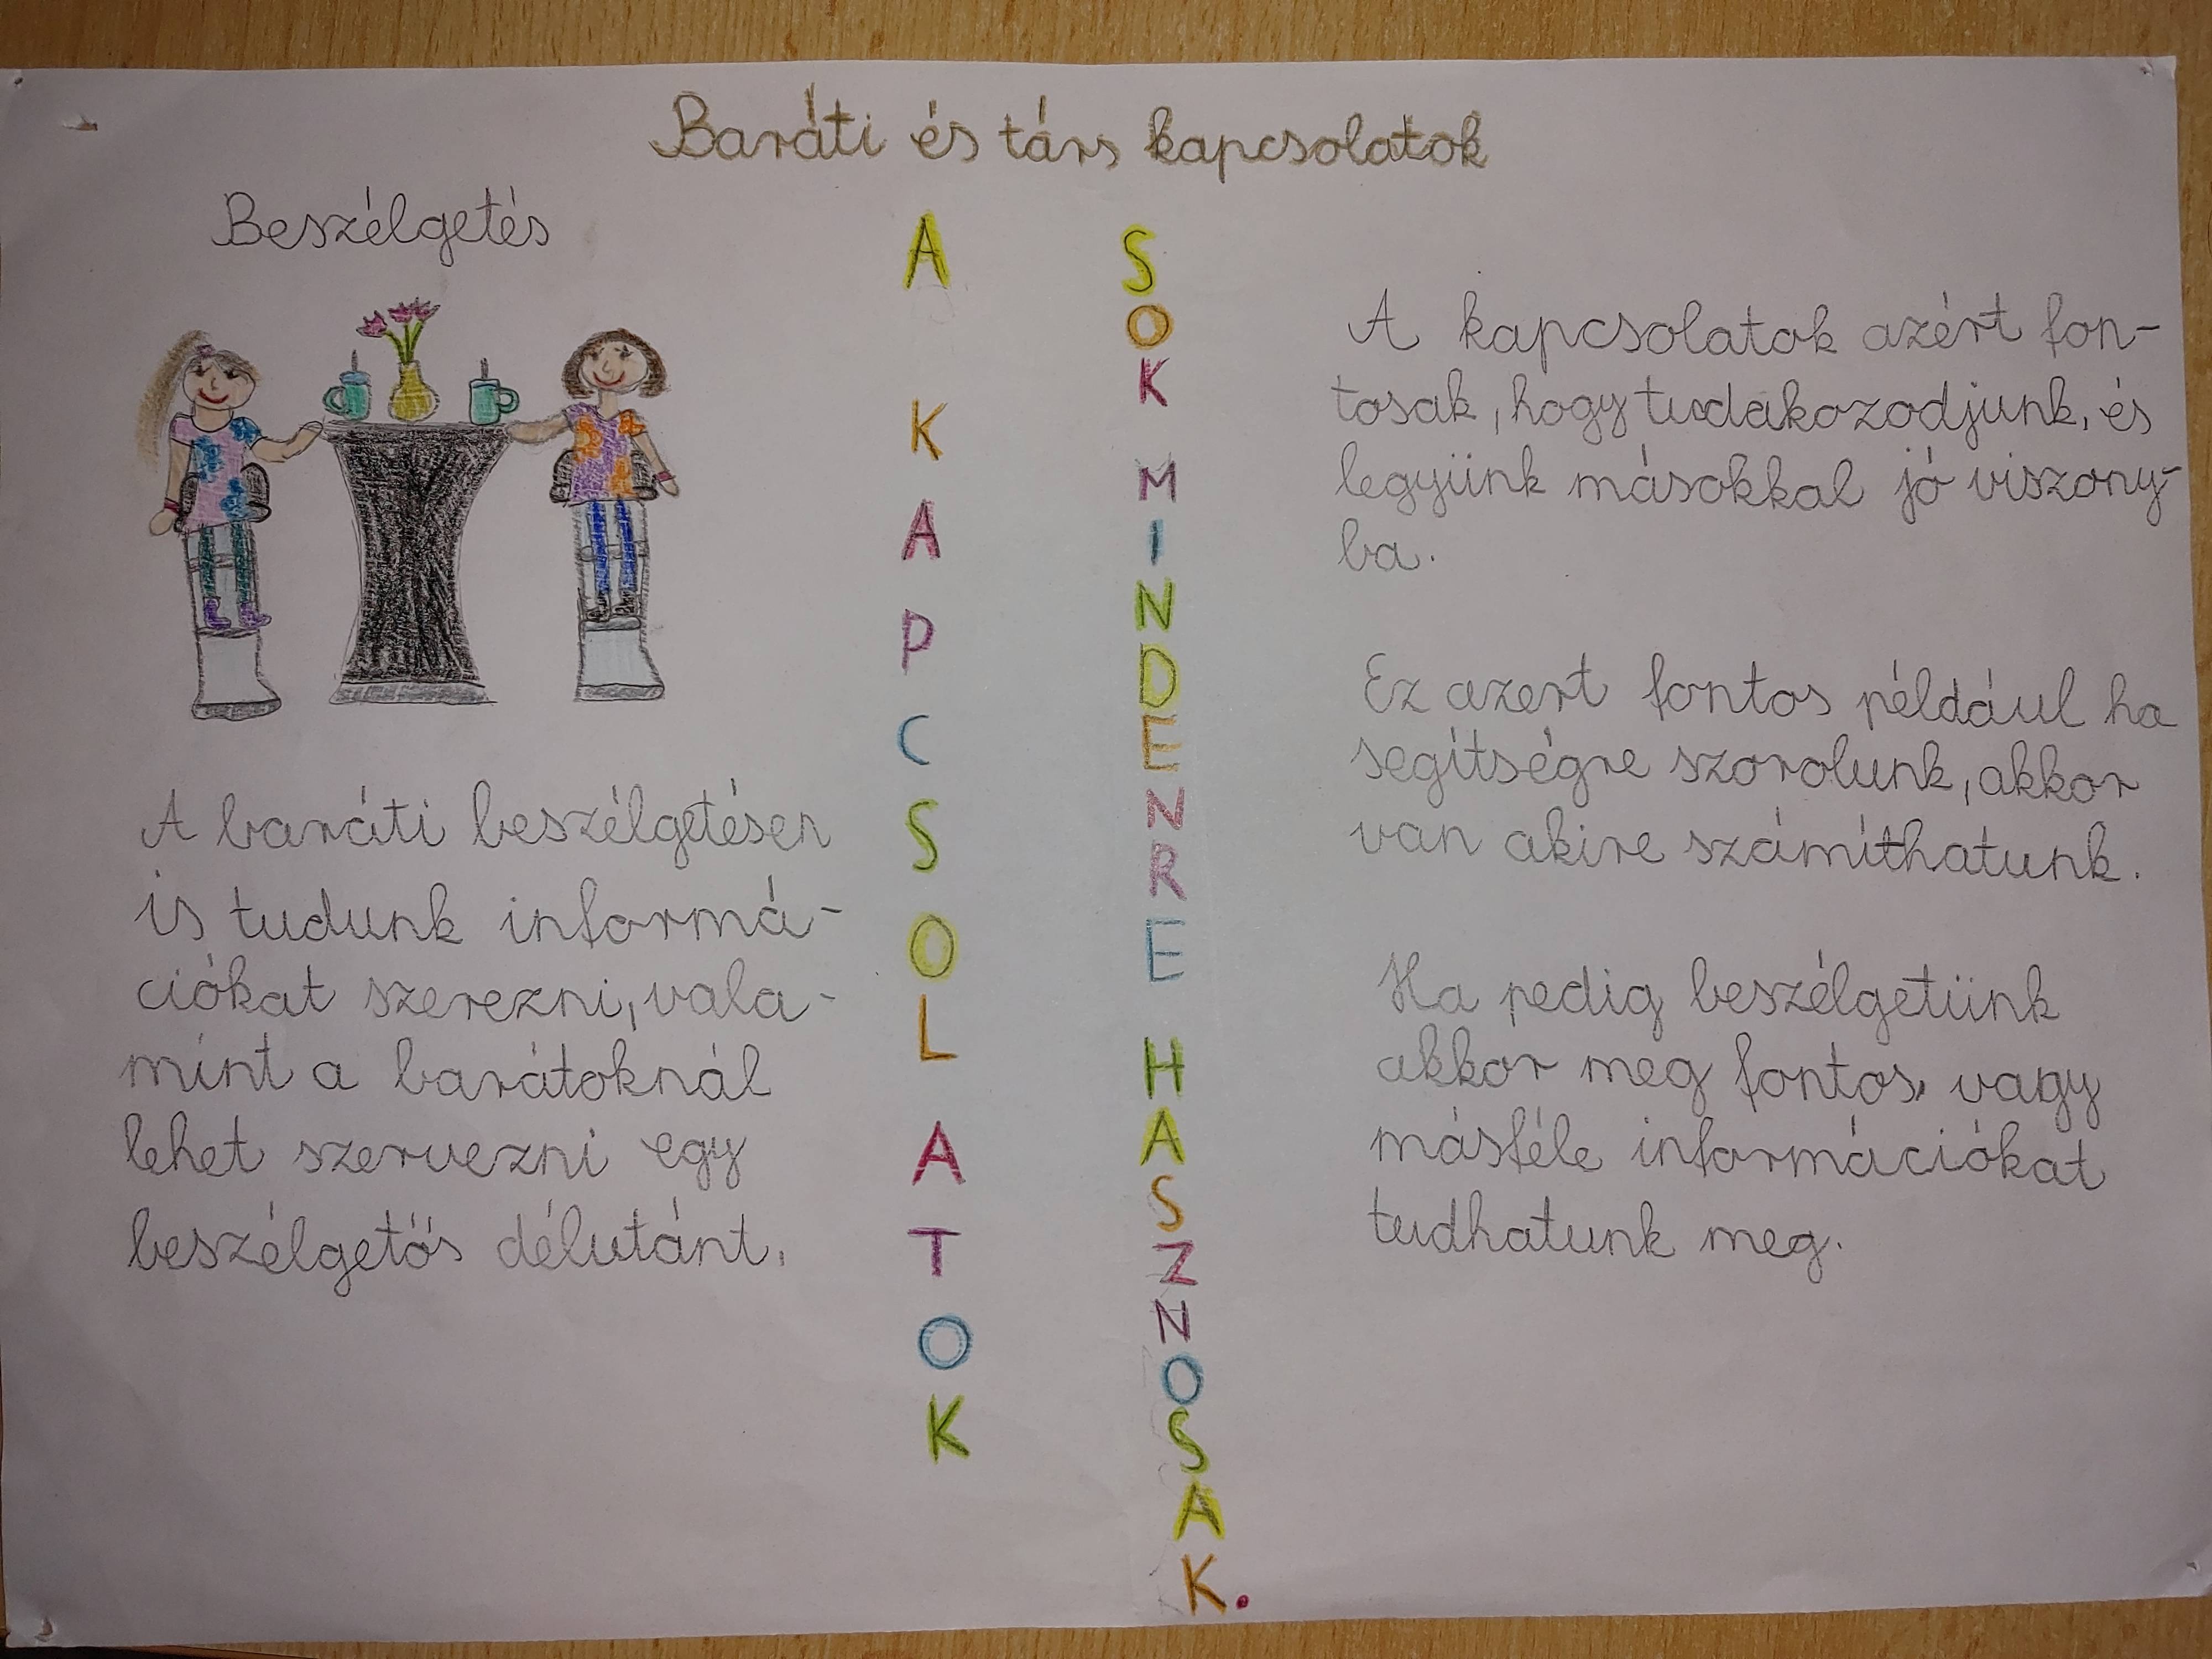 Baráti és társ kapcsolatok
Beszélgetés
A baráti beszélgetésen
is tudunk informá-
ciókat szerezni, vala-
mint a barátoknál
lehet szervezni egy
beszélgetős délutánt.
A KAPCSOLATOK
SOK MINDENRE HASZNOSAK.
A kapcsolatok azért fon-
tosak, hogy tudakozodjunk, és
legyünk másokkal jó viszony-
ba.
Ez azert fontos például ha
segítségre szorolunk, akkor
van akire számíthatunk.
Ha pedig beszélgetünk
akkor meg fontos, vagy
másféle információkat
tudhatunk meg.